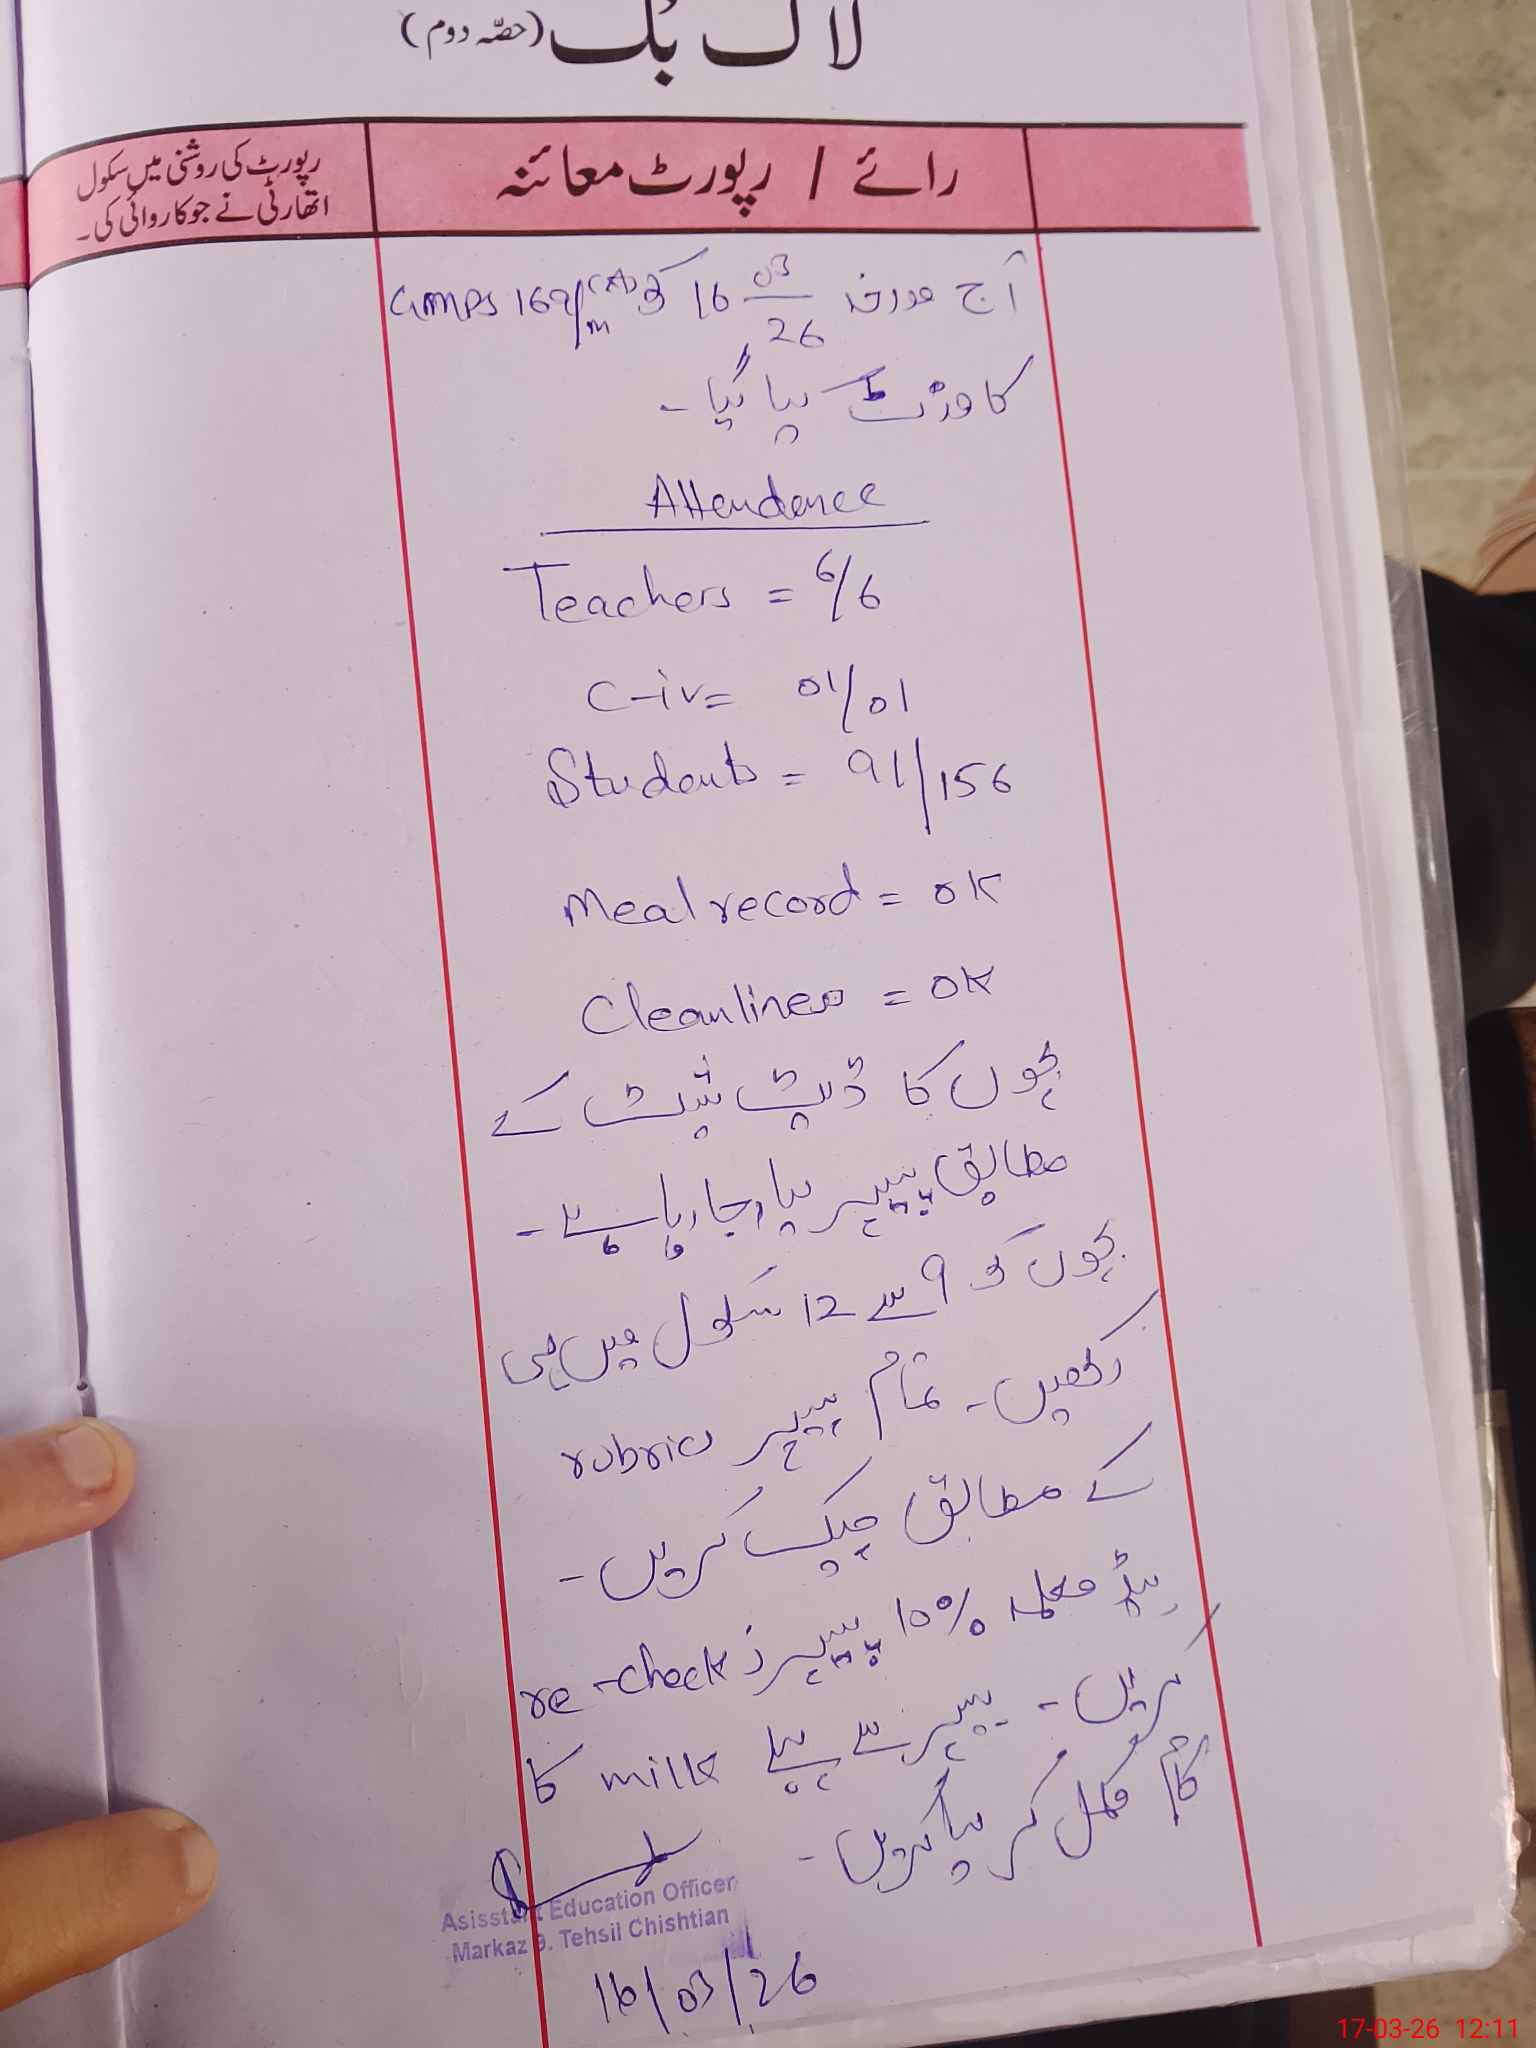 لاگ بُک (حصّہ دوم)
رائے / رپورٹ معائنہ
رپورٹ کی روشنی میں سکول
اتھارٹی نے جو کاروائی کی۔
آج مورخہ 16 03/26 کو GMPS 169/m
کا وزٹ کیا گیا۔
Attendence
Teachers = 6/6
C-iv = 01/01
Students = 91/156
Meal record = OK
Cleanliness = OK
بچوں کا ڈیٹ شیٹ کے
مطابق پیپر لیا جا رہا ہے۔
بچوں کو 9 سے 12 سکول میں ہی
رکھیں۔ تمام پیپر rubrics
کے مطابق چیک کریں۔
ہیڈ معلمہ 10% پیپرز re-check
کریں۔ پیپر سے پہلے milk کا
کام مکمل کر لیا کریں۔
Asisstant Education Officer
Markaz 9. Tehsil Chishtian
16/03/26
17-03-26 12:11